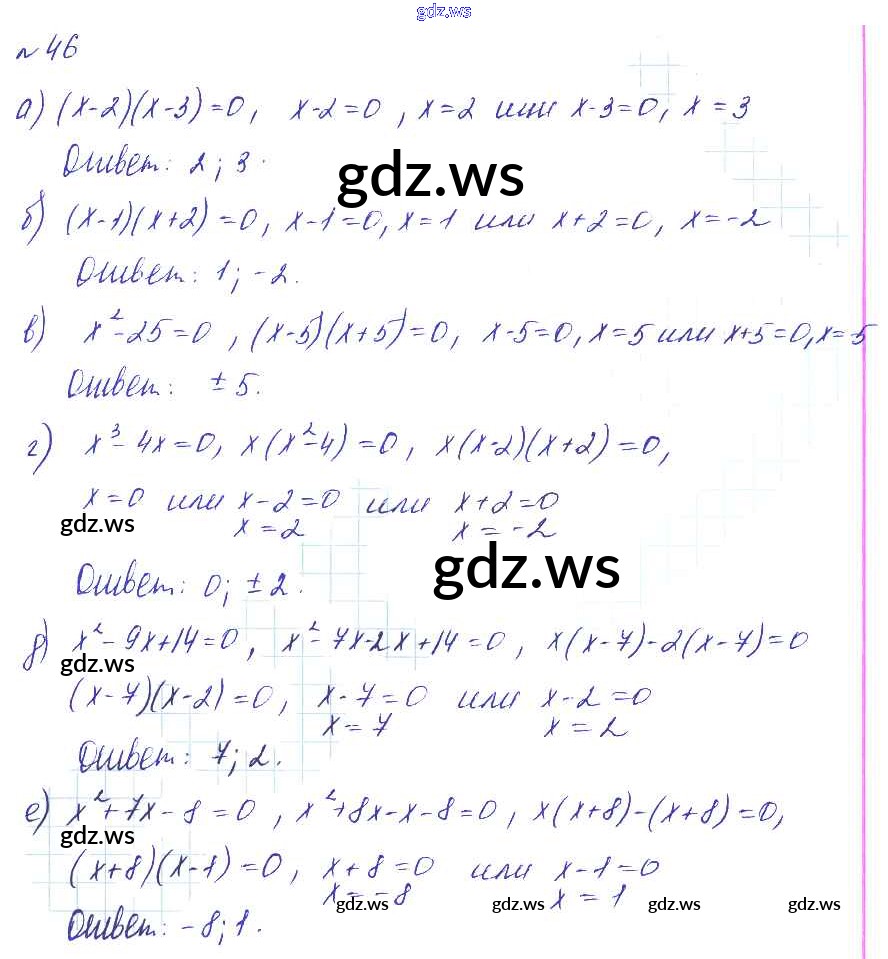 gdz.ws
№46
а) (x-2)(x-3)=0, x-2=0, x=2 или x-3=0, x=3
Ответ: 2; 3.
gdz.ws
б) (x-1)(x+2)=0, x-1=0, x=1 или x+2=0, x=-2
Ответ: 1; -2.
в) x²-25=0, (x-5)(x+5)=0, x-5=0, x=5 или x+5=0, x=-5
Ответ: ±5.
г) x³-4x=0, x(x²-4)=0, x(x-2)(x+2)=0,
x=0 или x-2=0 или x+2=0
gdz.ws x=2 x=-2
gdz.ws
Ответ: 0; ±2.
д) x²-9x+14=0, x²-7x-2x+14=0, x(x-7)-2(x-7)=0
gdz.ws
(x-7)(x-2)=0, x-7=0 или x-2=0
x=7 x=2
Ответ: 7; 2.
е) x²+7x-8=0, x²+8x-x-8=0, x(x+8)-(x+8)=0,
gdz.ws
(x+8)(x-1)=0, x+8=0 или x-1=0
x=-8 x=1
gdz.ws gdz.ws gdz.ws gdz.ws
Ответ: -8; 1.